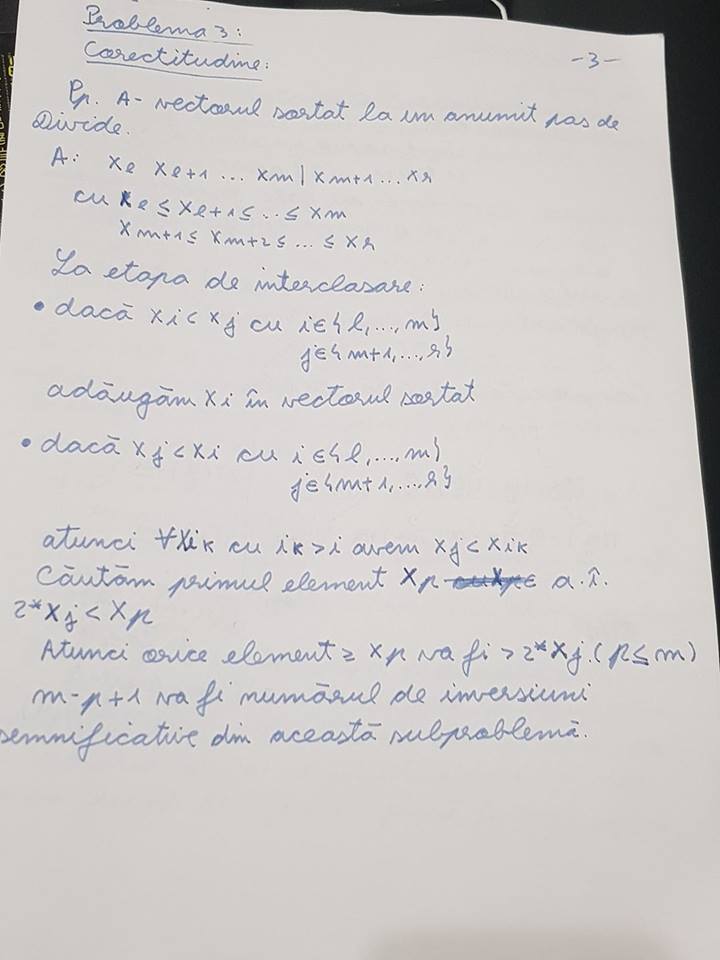 Problema 3:
Corectitudine:
-3-
Pp. A - vectorul sortat la un anumit pas de
Divide.
A: xl xl+1 ... xm | xm+1 ... xr
cu xl ≤ xl+1 ≤ ... ≤ xm
xm+1 ≤ xm+2 ≤ ... ≤ xr
La etapa de interclasare:
• dacă xi < xj cu i∈{l,...,m}
j∈{m+1,...,r}
adăugăm xi în vectorul sortat
• dacă xj < xi cu i∈{l,...,m}
j∈{m+1,...,r}
atunci ∀xik cu ik > i avem xj < xik
Căutăm primul element xp a.î.
2*xj < xp
Atunci orice element ≥ xp va fi > 2*xj. (p ≤ m)
m-p+1 va fi numărul de inversiuni
semnificative din această subproblemă.